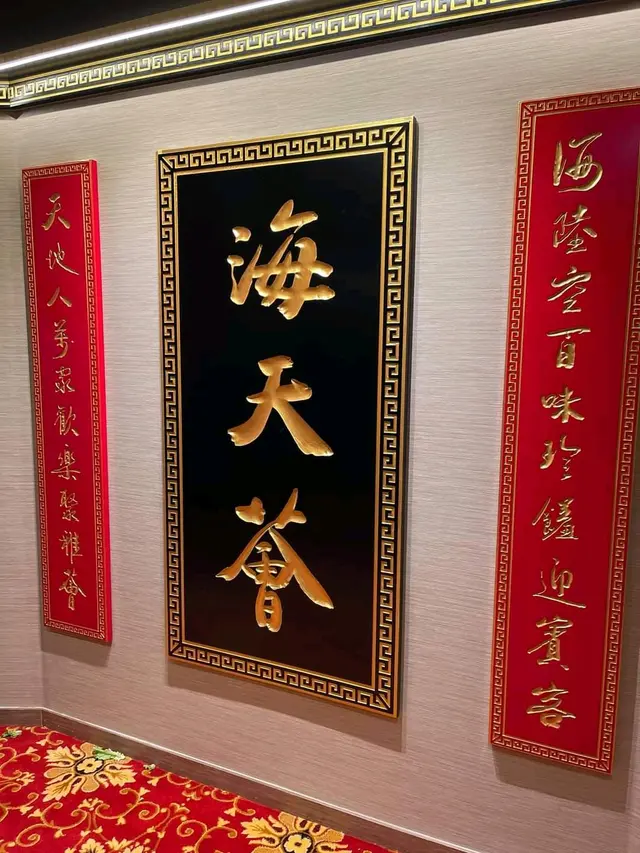 海陸空百味珍饈迎賓客
海天薈
天地人萬家歡樂聚雅薈